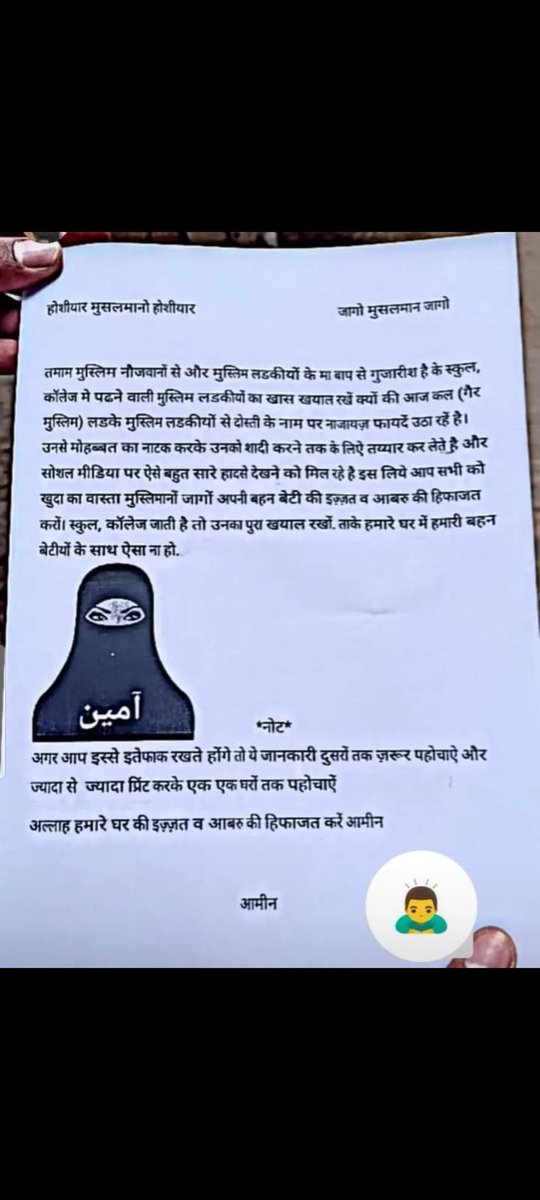 होशीयार मुसलमानो होशीयार
जागो मुसलमान जागो
तमाम मुस्लिम नौजवानों से और मुस्लिम लडकीयों के मा बाप से गुजारीश है के स्कुल,
कॉलेज मे पढने वाली मुस्लिम लडकीयों का खास खयाल रखें क्यों की आज कल (गैर
मुस्लिम) लडके मुस्लिम लडकीयों से दोस्ती के नाम पर नाजायज़ फायदें उठा रहें है।
उनसे मोहब्बत का नाटक करके उनको शादी करने तक के लिऐ तय्यार कर लेते है और
सोशल मीडिया पर ऐसे बहुत सारे हादसे देखने को मिल रहे है इस लिये आप सभी को
खुदा का वास्ता मुस्लिमानों जागों अपनी बहन बेटी की इज़्ज़त व आबरु की हिफाजत
करों। स्कुल, कॉलेज जाती है तो उनका पुरा खयाल रखों. ताके हमारे घर में हमारी बहन
बेटीयों के साथ ऐसा ना हो.
آمین
*नोट*
अगर आप इस्से इतेफाक रखते होंगे तो ये जानकारी दुसरों तक ज़रूर पहोचाऐ और
ज्यादा से ज्यादा प्रिंट करके एक एक घरों तक पहोचाऐं
अल्लाह हमारे घर की इज़्ज़त व आबरु की हिफाजत करें आमीन
आमीन